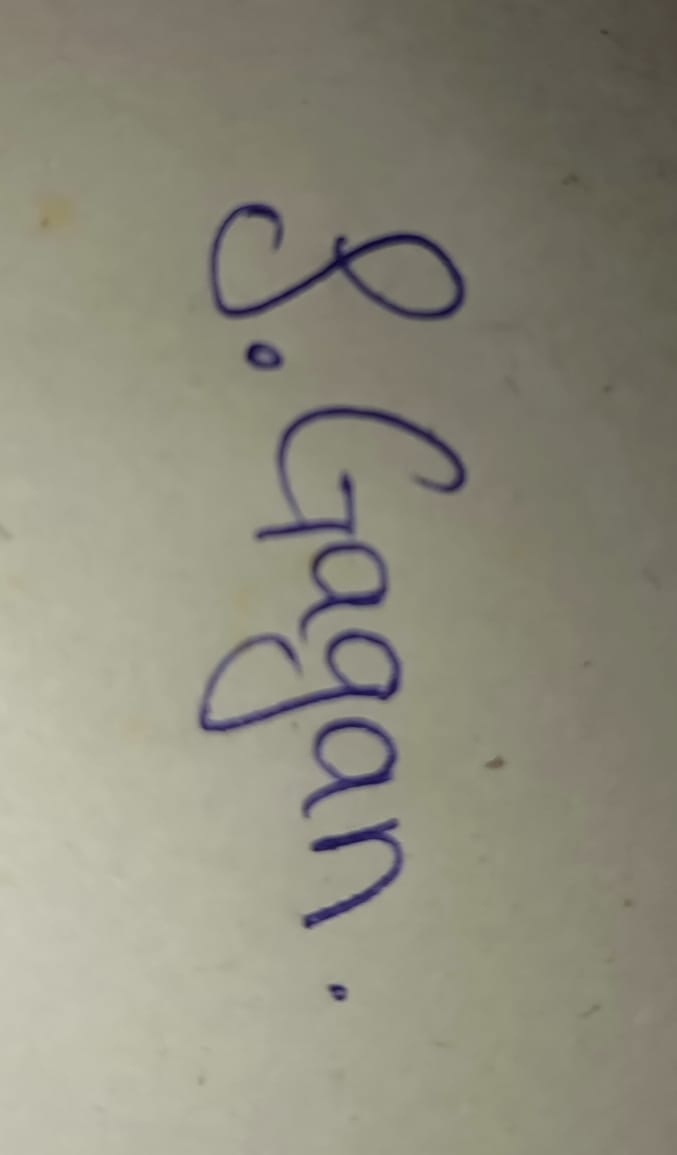 S. Gagan.